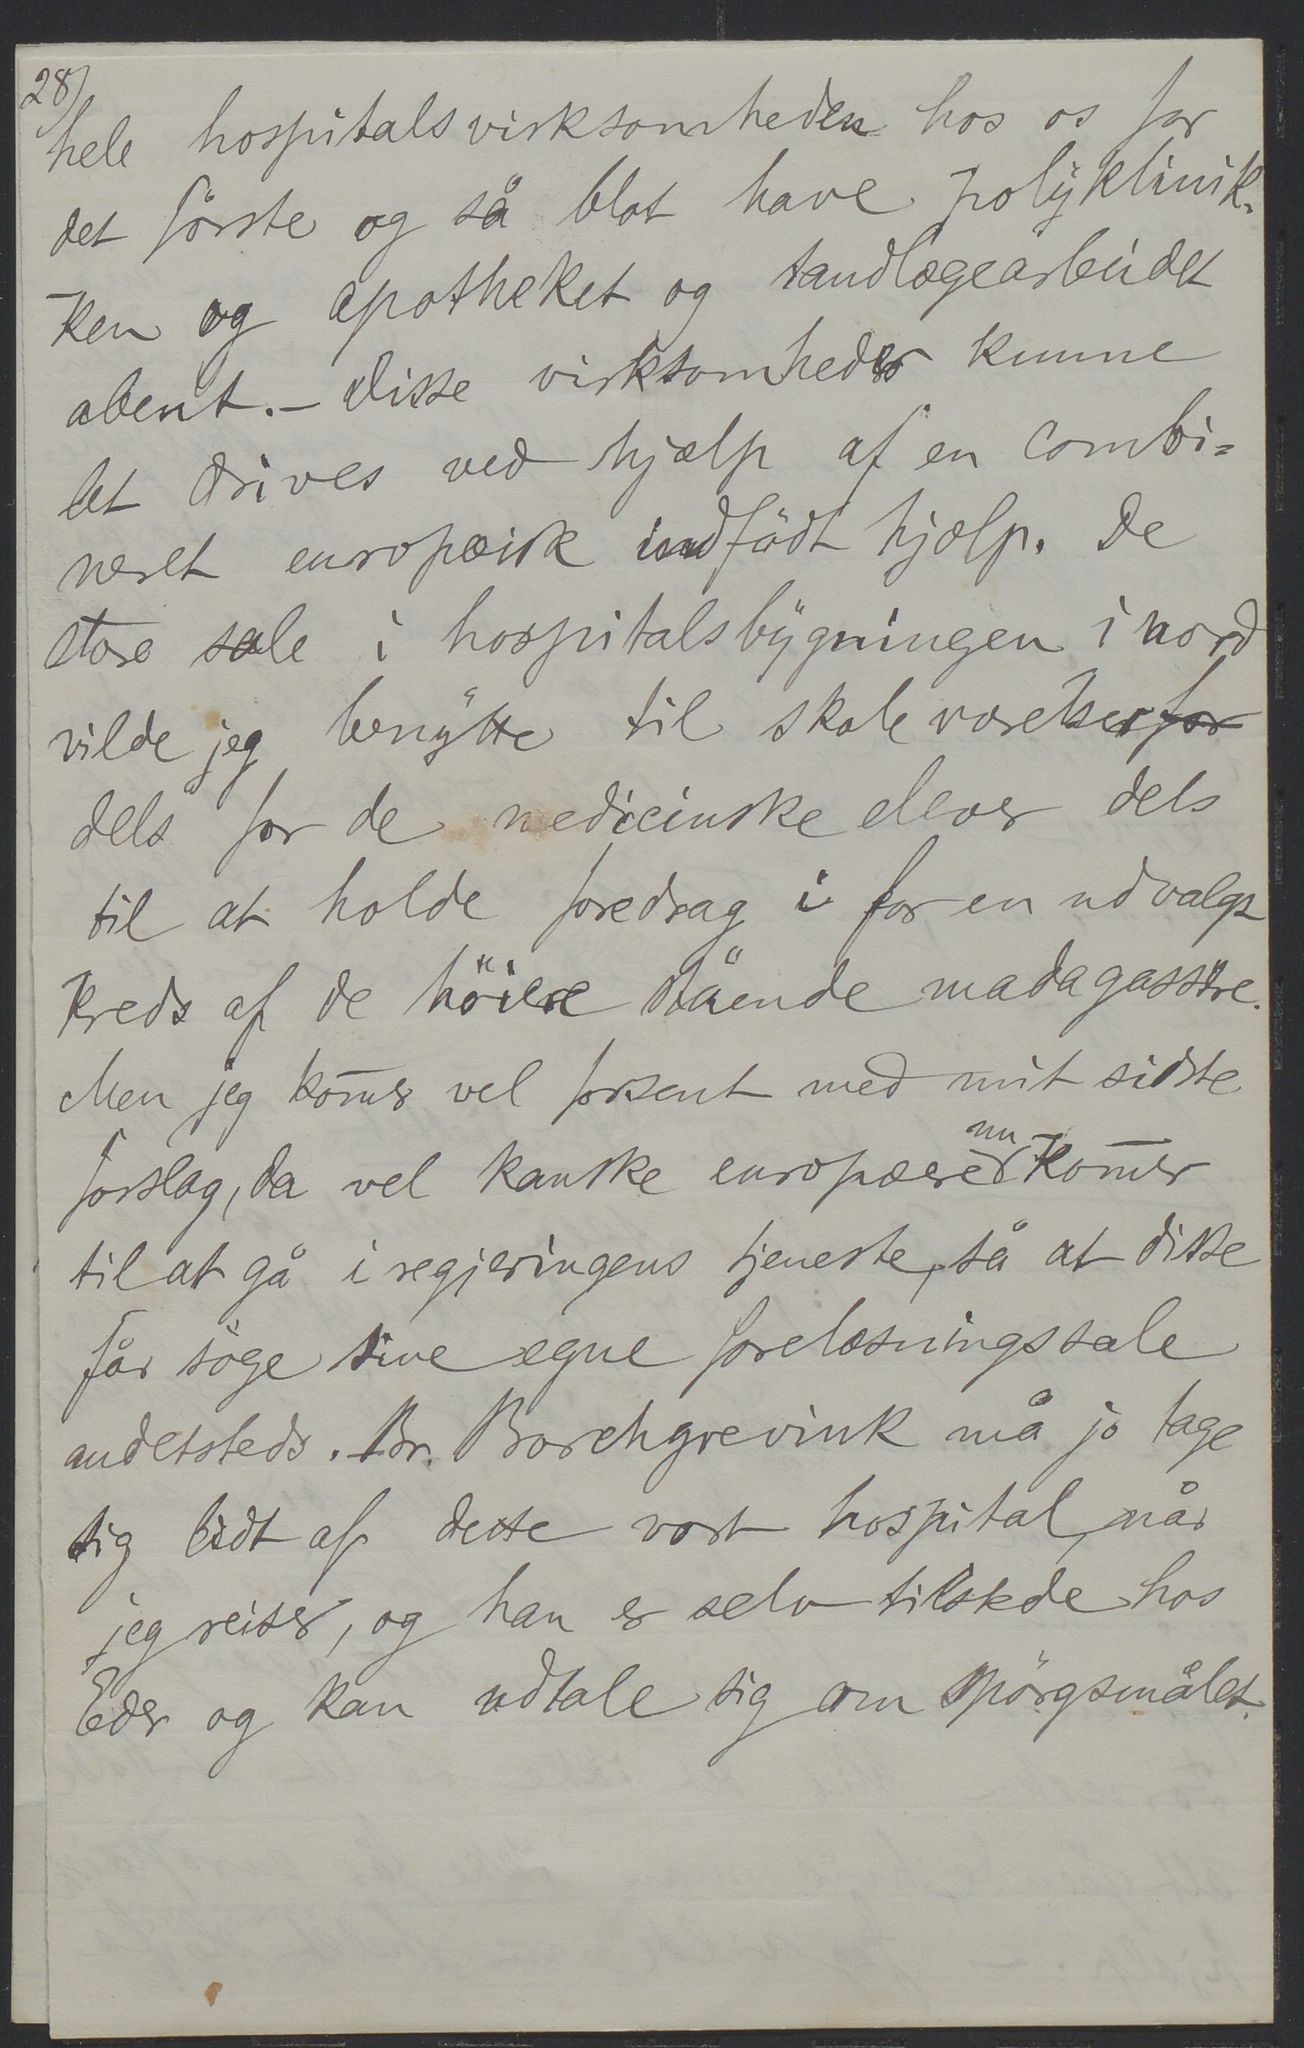 28/
hele hospitalsvirksomheden hos os for
det første og så blot have polyklinik-
ken og apotheket og tandlægearbeidet
abent. - Disse virksomheder kunne
let drives ved hjælp af en combi=
neret europæisk indfödt hjælp. De
store sale i hospitalsbygningen i nord
vilde jeg benytte til skoleværelser for
dels for de medicinske elever dels
til at holde foredrag i for en udvalgt
kreds af de höiere stående madagassere.
Men jeg kom̅er vel forsent med mit sidste
forslag, da vel kanske europæere nu kom̅er
til at gå i regjeringens tjeneste, så at disse
får söge sine egne forelæsningssale
andetsteds. Br. Borchgrevink må jo tage
sig lidt af dette vort hospital, når
jeg reiser, og han er selv tilstede hos
Eder og kan udtale sig om spörgsmålet.